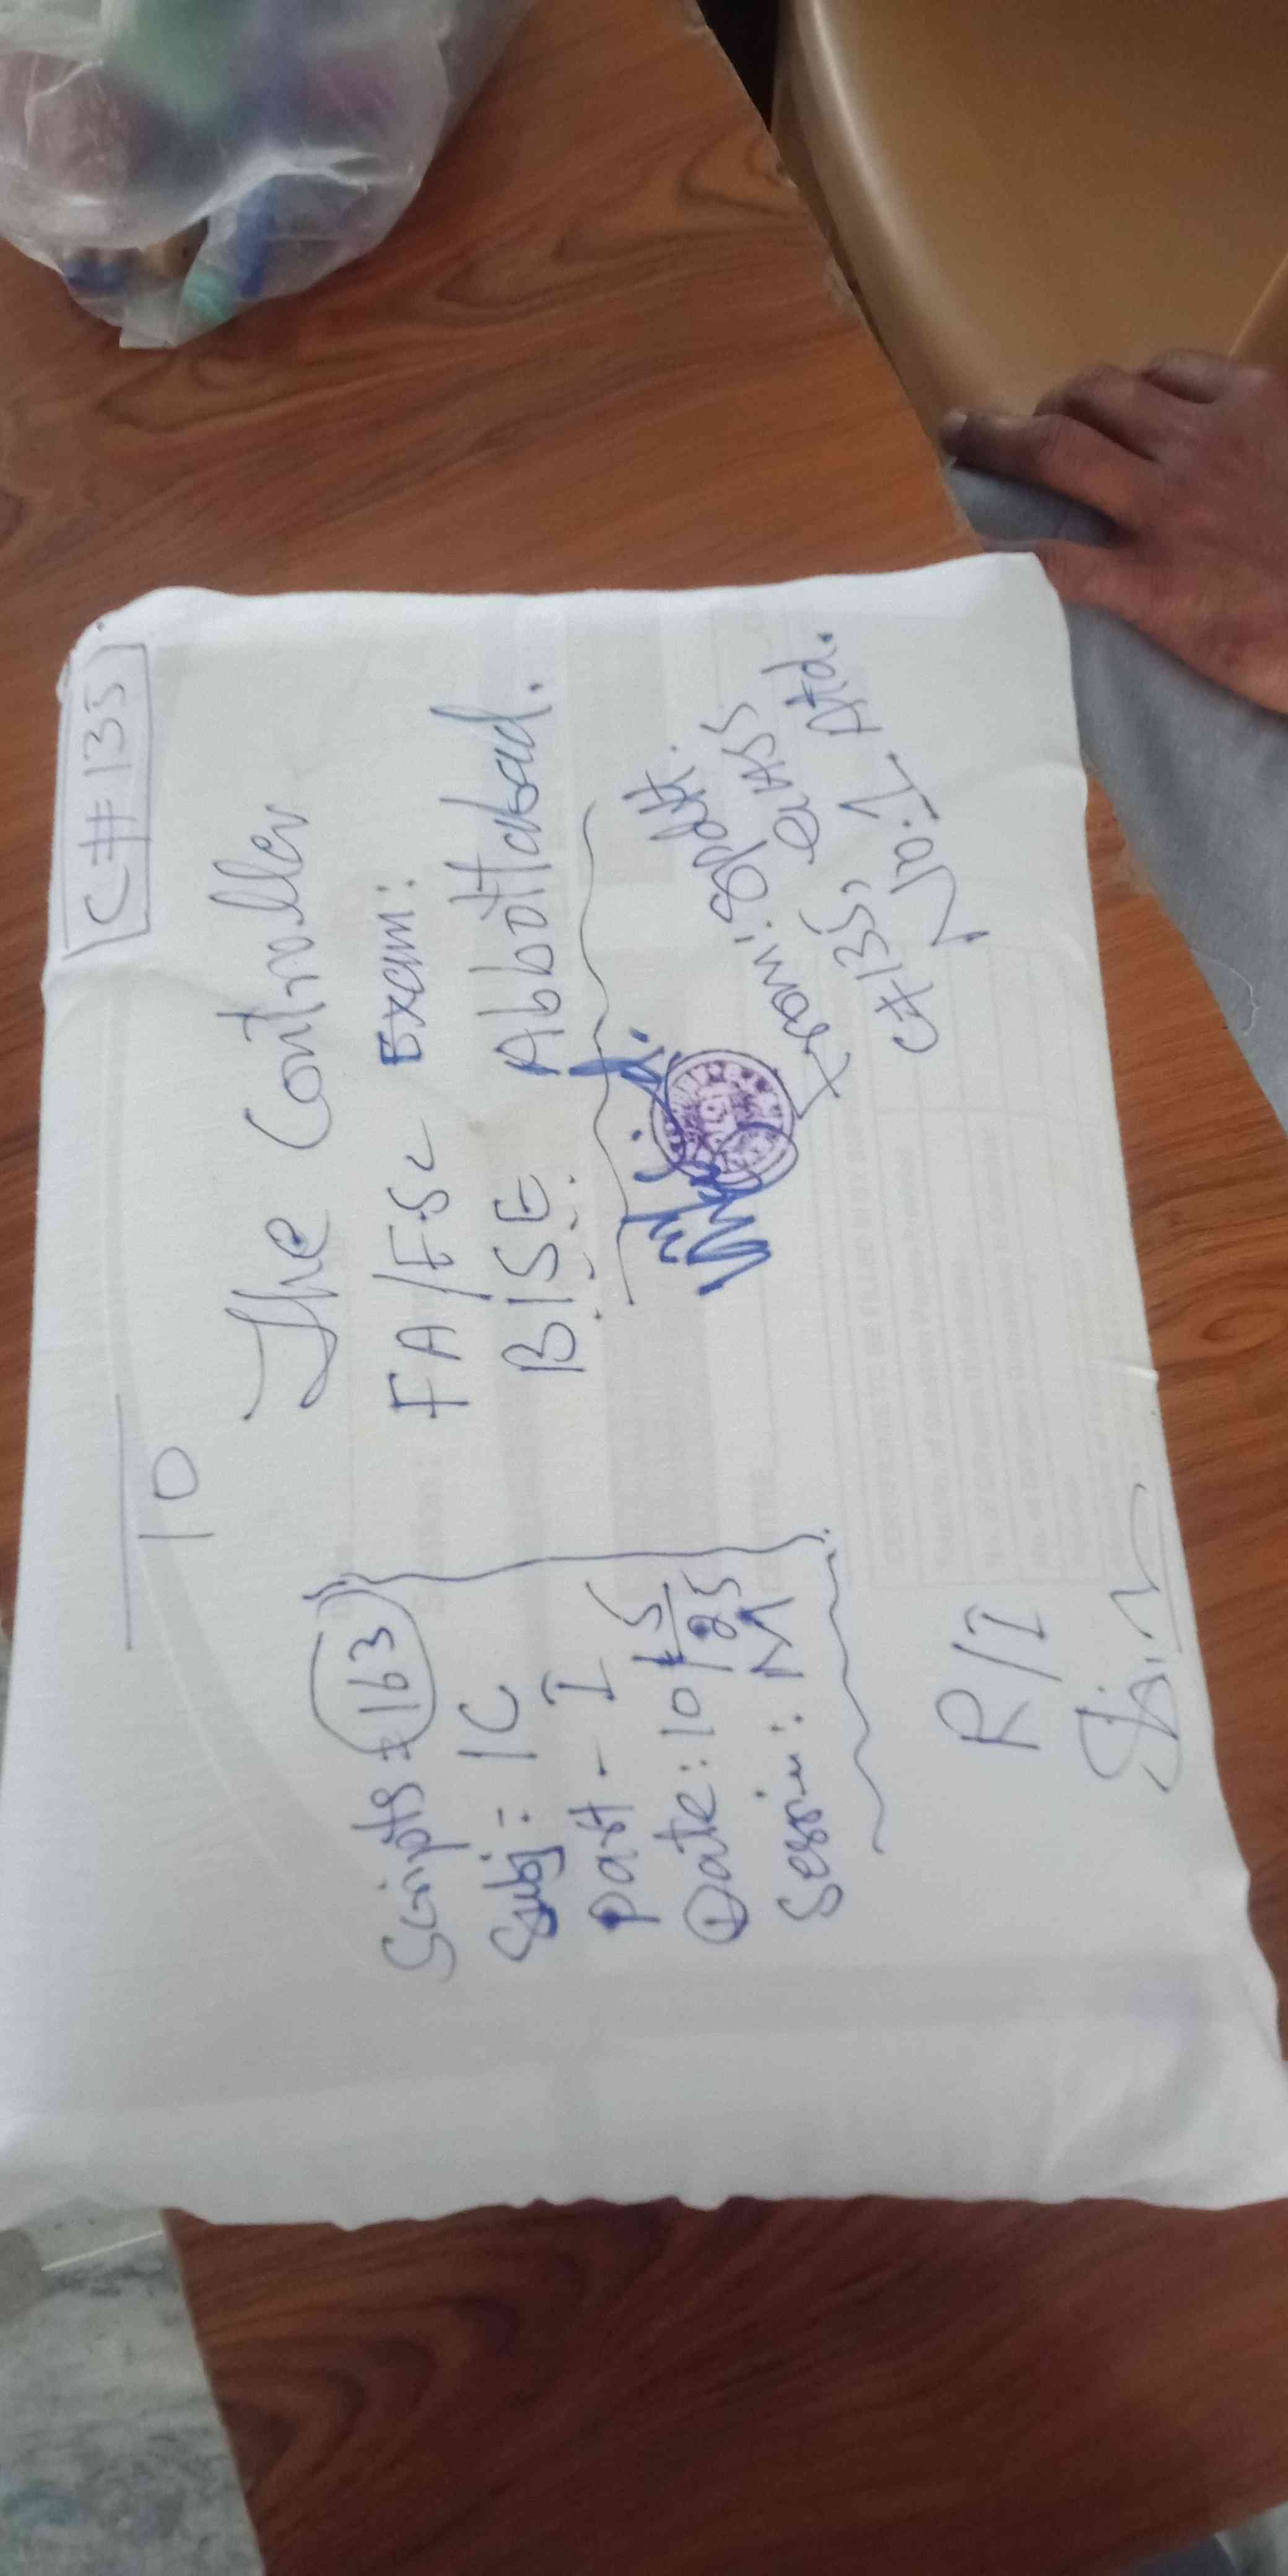 C# 135
To
The Controller
FA/FSc Exam:
BISE Abbottabad.
Scripts = 163
Subj: IC
Part - I
Date: 10/5/25
Session: M
From: Spdtt.
C#135, GHSS
No:1 Atd.
R/I